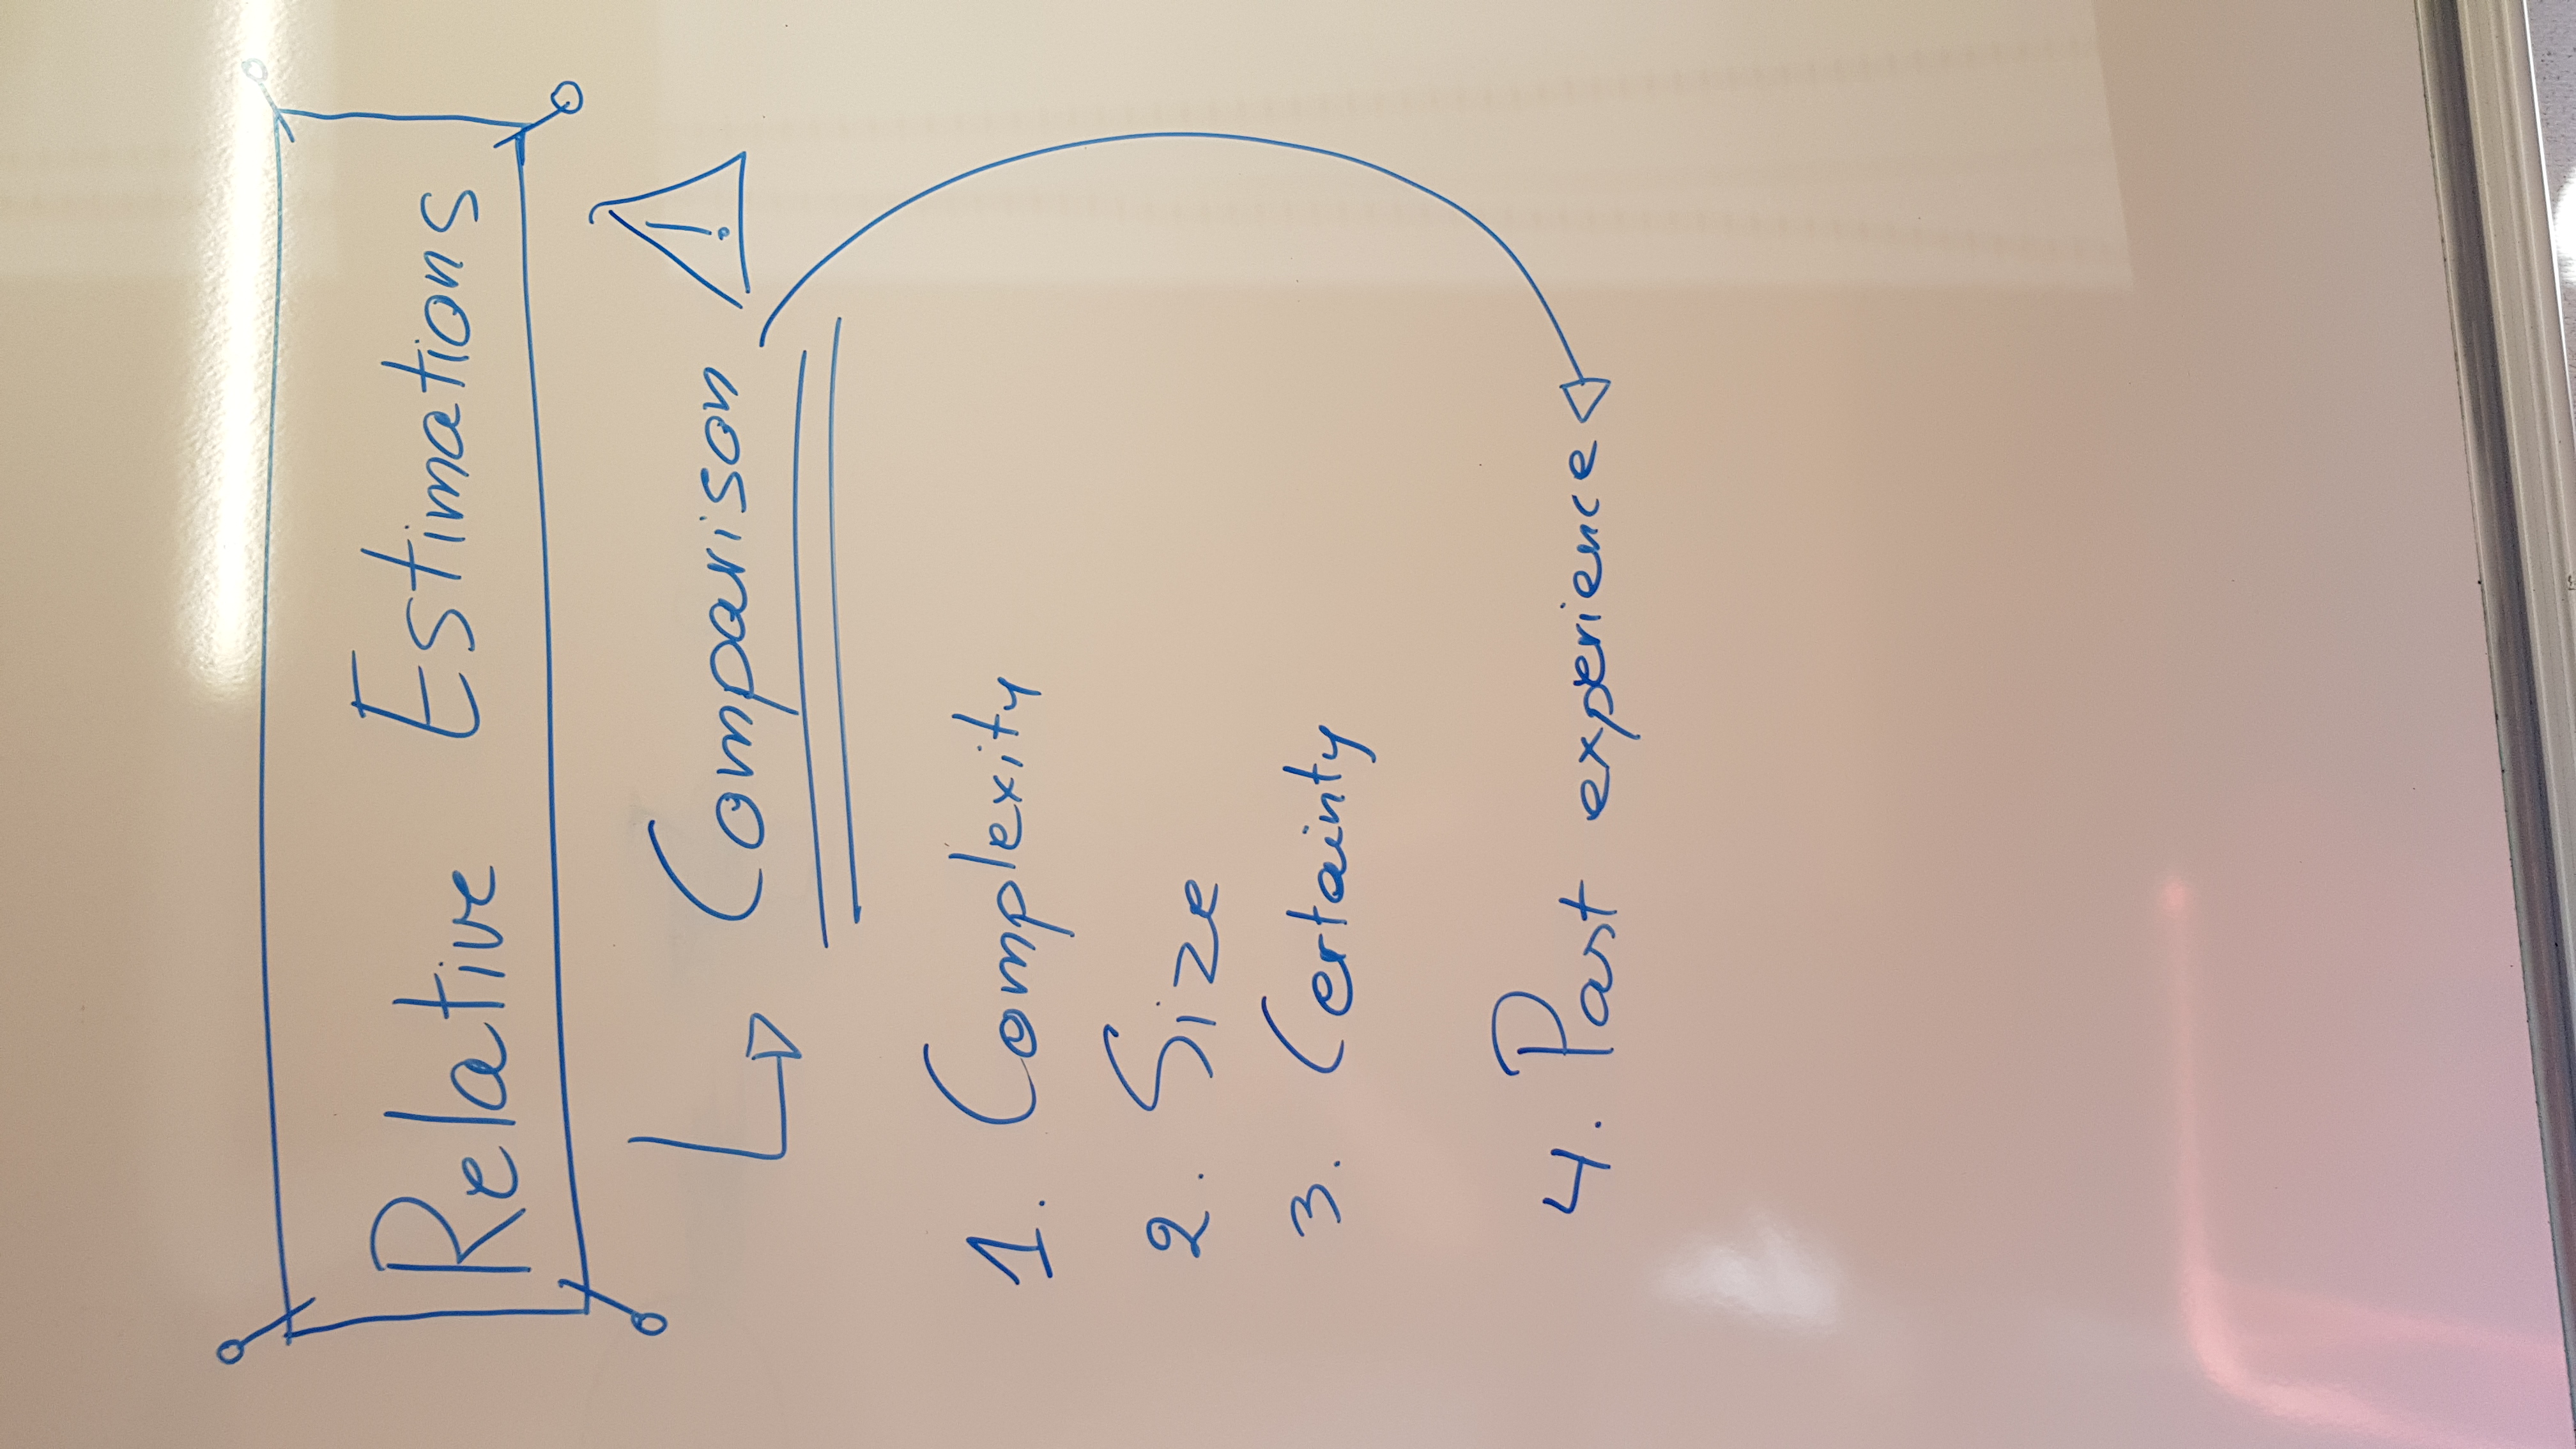 Relative Estimations
Comparison !
1. Complexity
2. Size
3. Certainty
4. Past experience